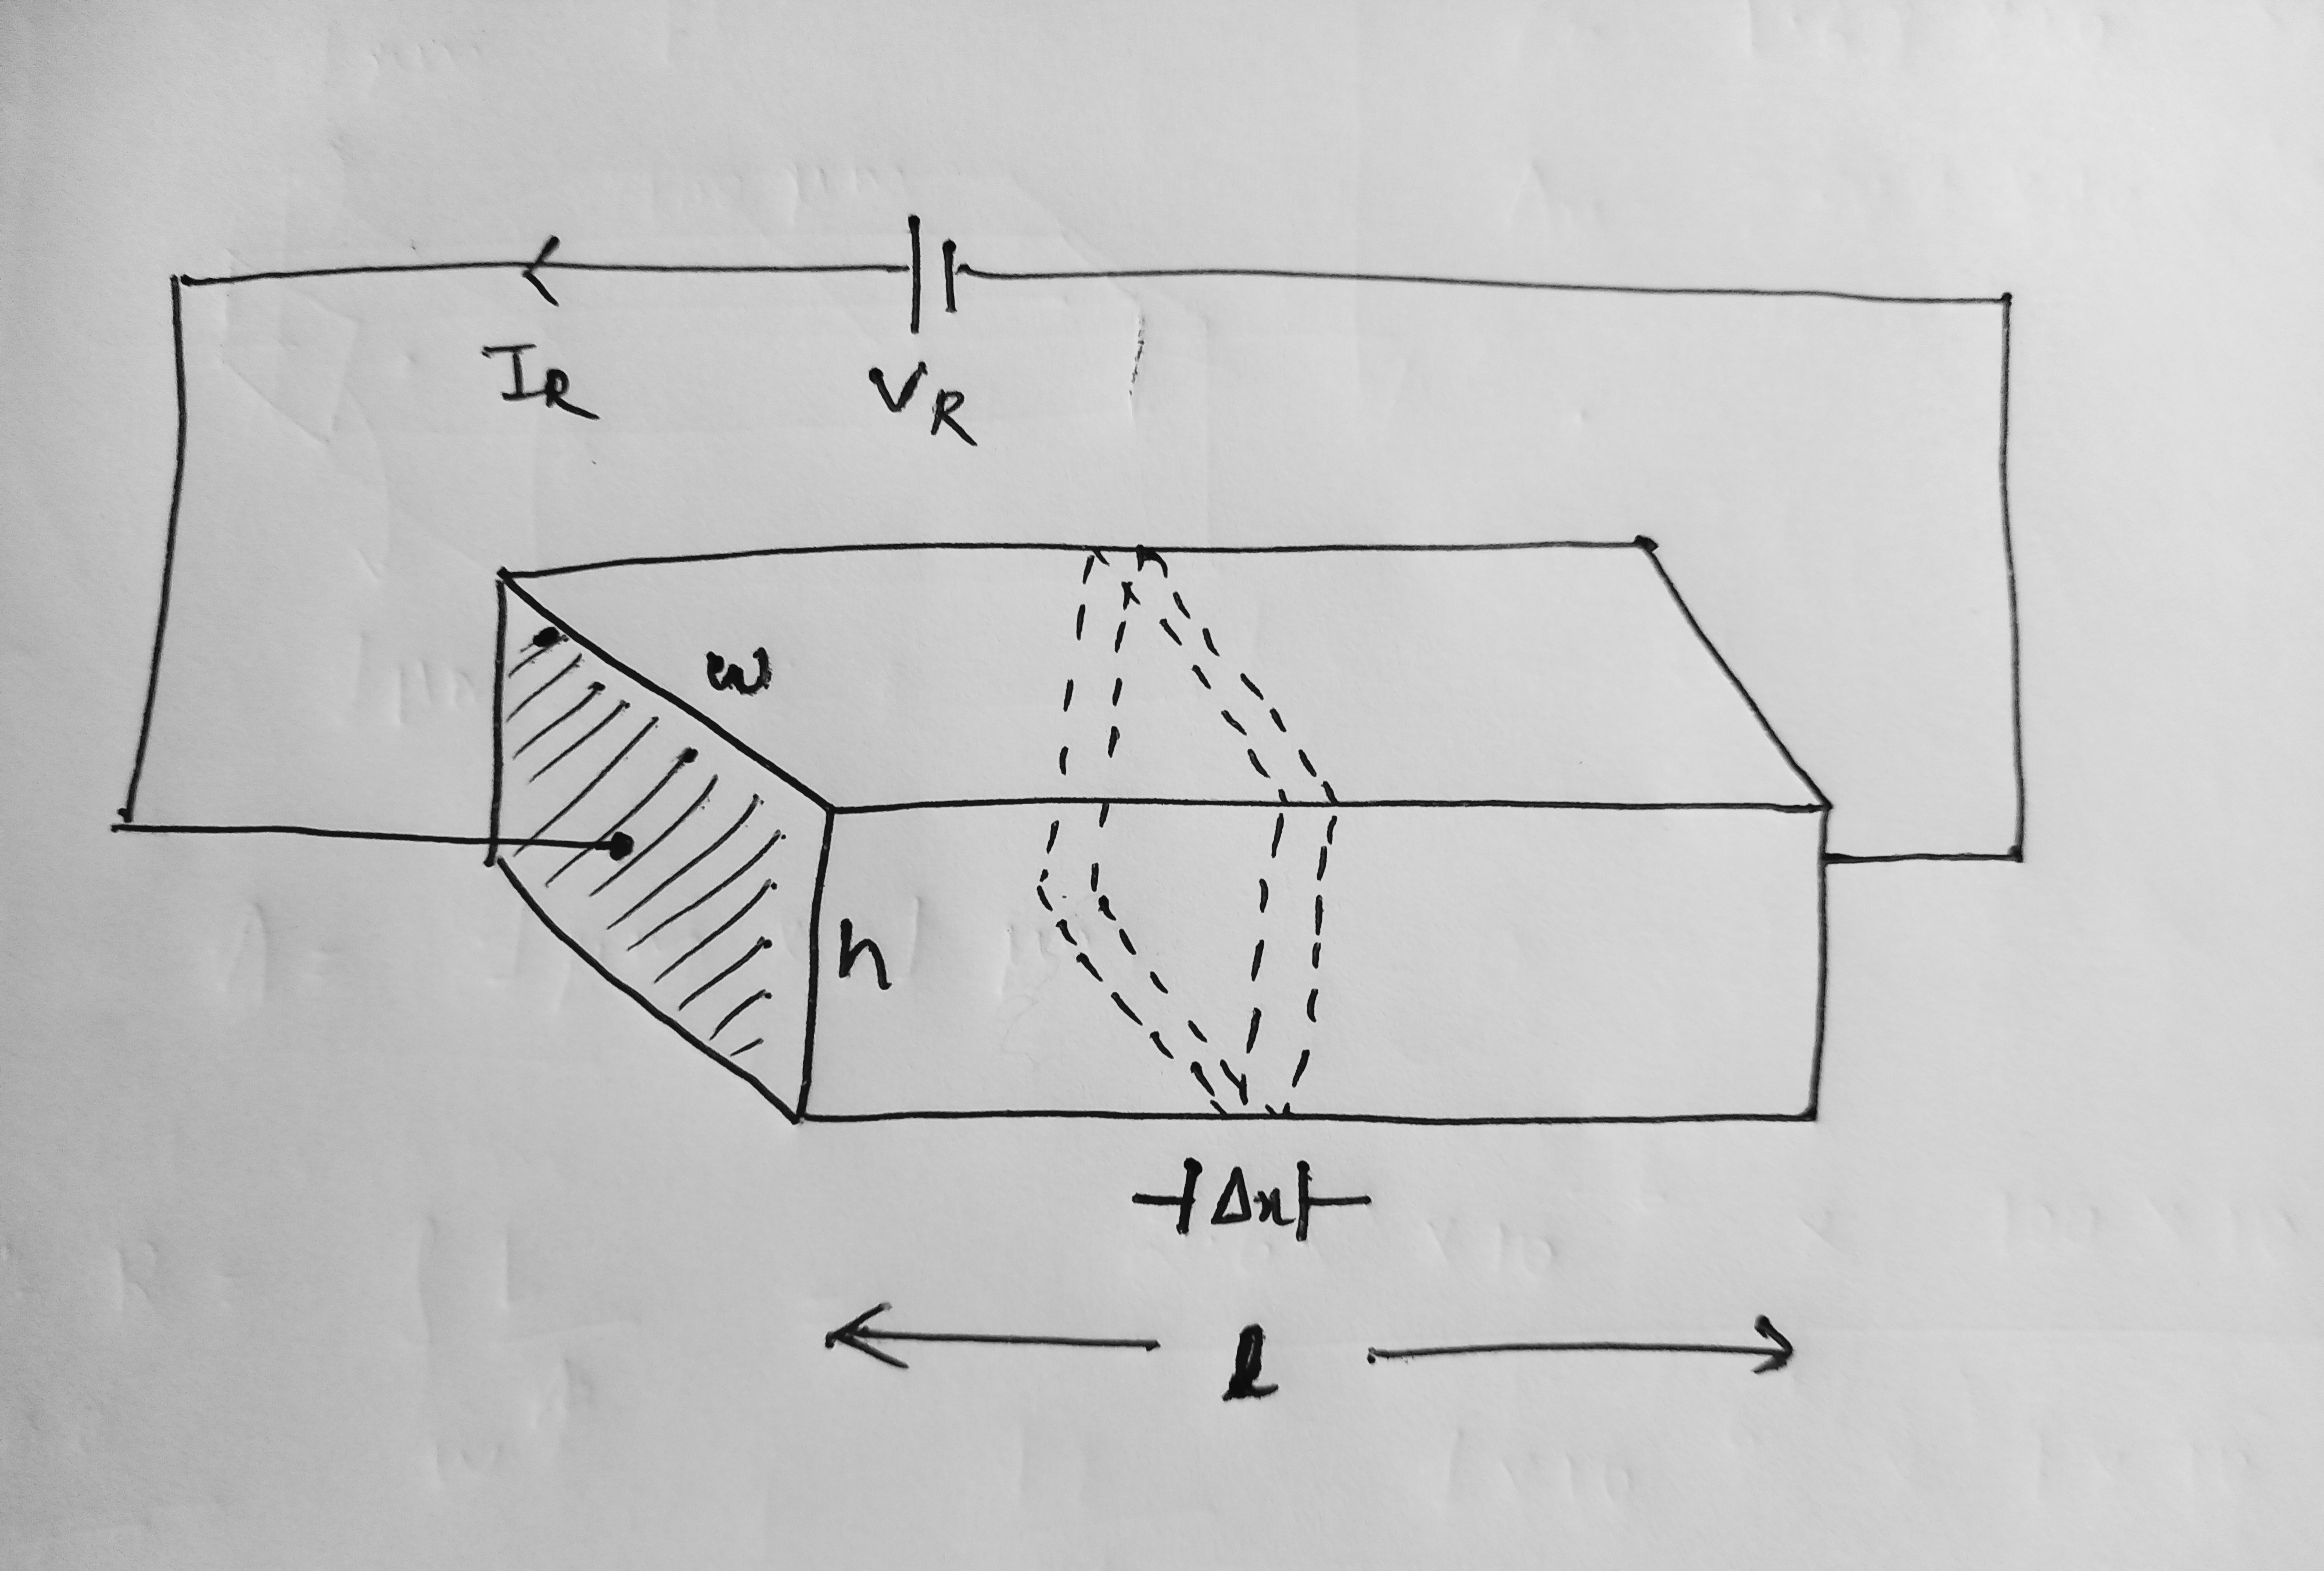 I_R
V_R
w
h
Δx
l